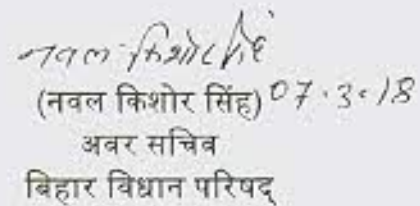 नवल किशोर सिंह
(नवल किशोर सिंह) 07.3.18
अवर सचिव
बिहार विधान परिषद्